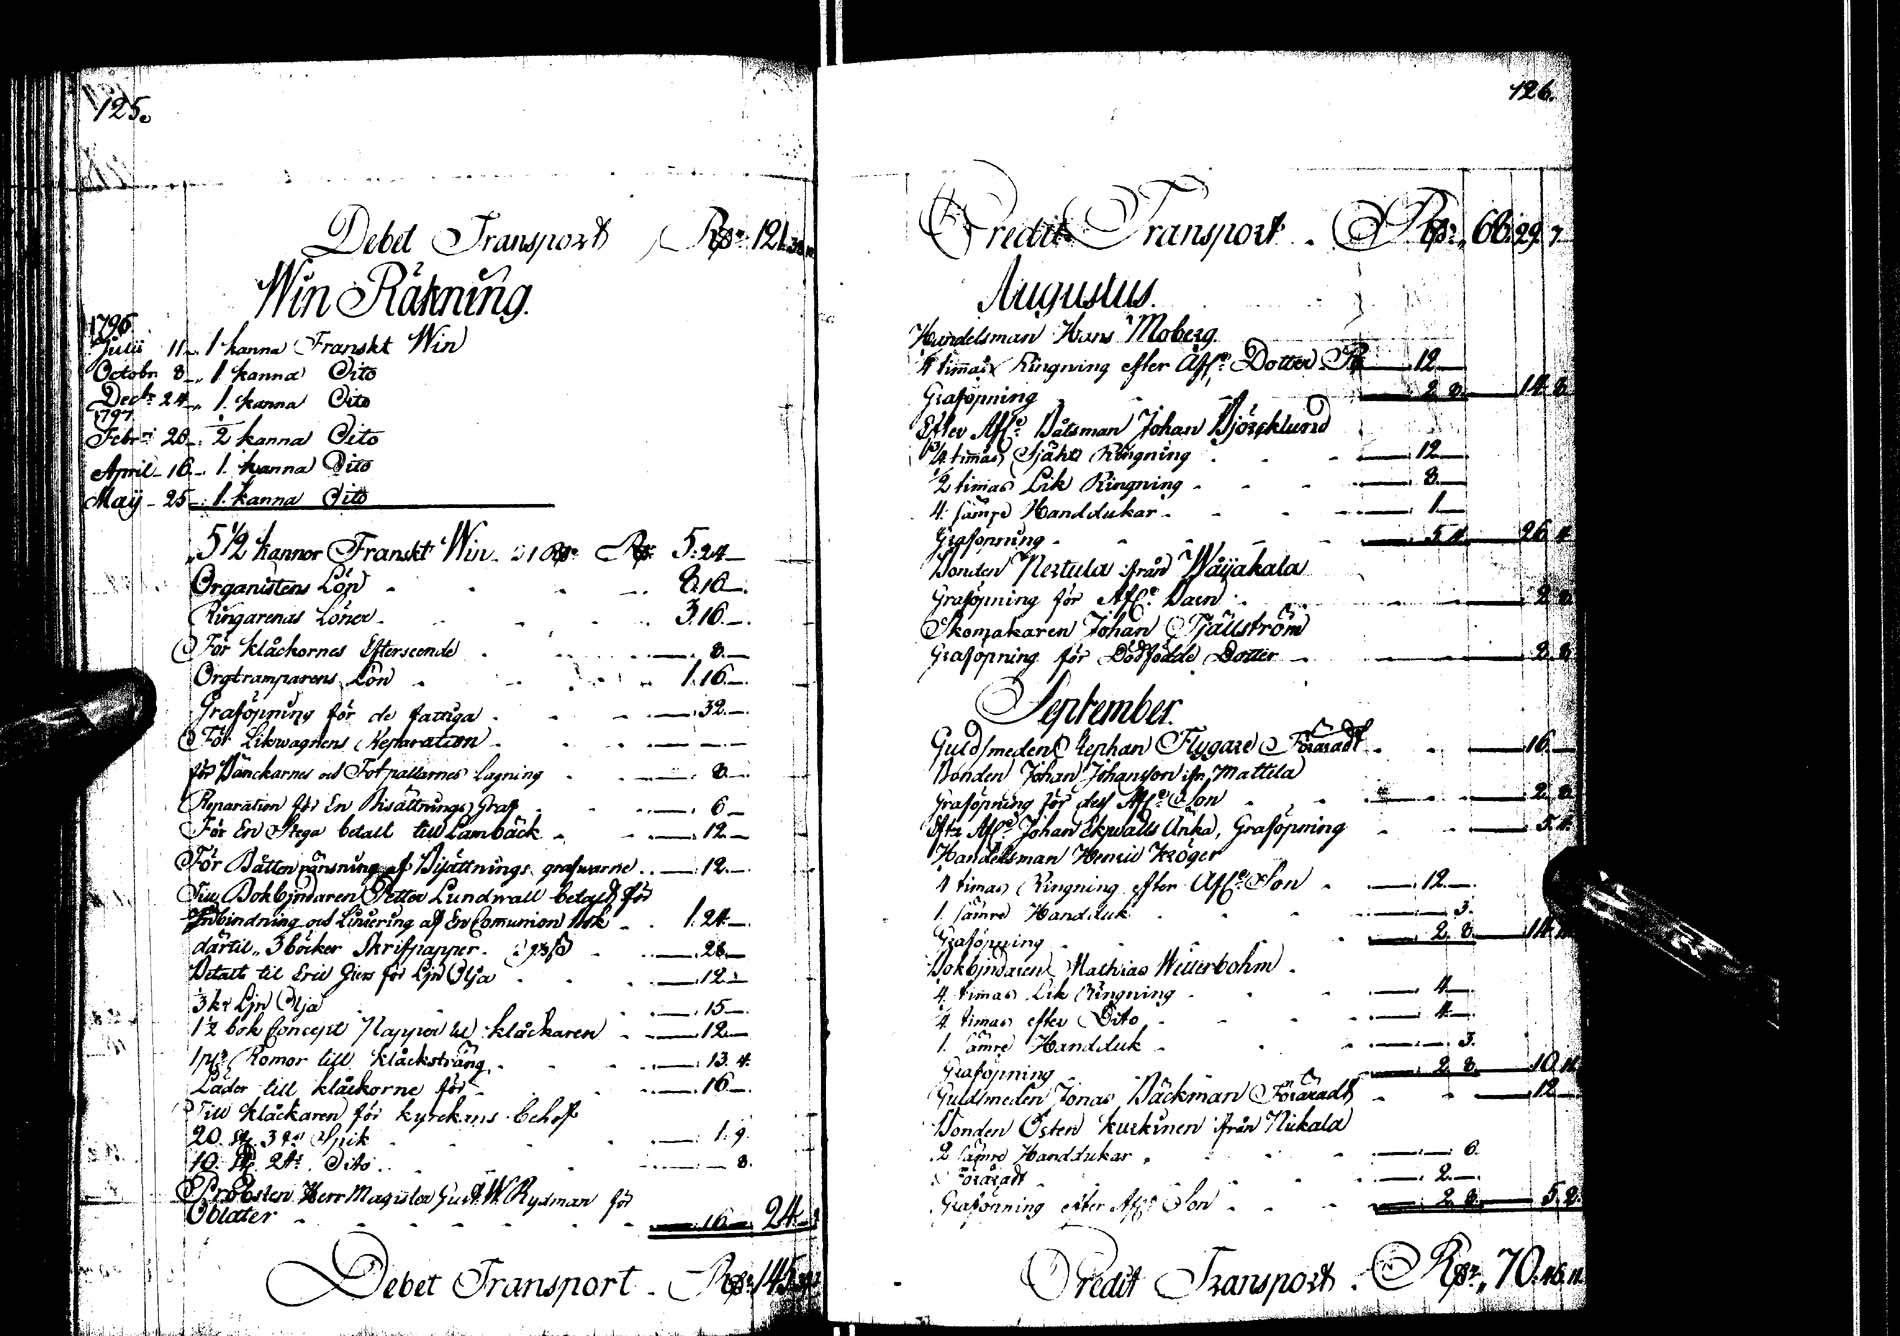 125.
Debet Transport Rdr 121.
Win Räkning.
1796
Julii 11 1 kanna Franskt Win
Octobr 8 1. kanna Dito
Decbr 24 1. kanna Dito
1797
Febr 28 1/2 kanna Dito
April 16 1. kanna Dito
Maij 25 1. kanna Dito
5 1/2 kannor Franskt Win à 1 Rdr Rdr 5:24
Organistens Lön 8.16
Ringarenas Löner 3.16
För klåckornes Efterseende 8.
Orgtramparens Lön 1.16
Graföpning för de fattiga 32.
För Likwagnens Reparation
för Bänckarnes och Fotpallarnes lagning 8.
Reparation för En Bisättnings Graf 6
För En Stega betalt till Lambäck 12
För Båtten ränsning af Bisättnings grafwarne 12.
Till Bokbindaren Petter Lundwall betalt för
Inbindning och Liniering af En Comunion bok 1.24
därtil 3 böcker Skrifpapper 28
Betalt til Eric för Ljn Olja 12
3 kr Ljn Olja 15
1 1/2 bok Concept Papper til klåckaren 12
Romor till klåcksträng 13.4.
Läder till klåckorne för 16
Till klåckaren för kyrckans behof
20. st. 3 Spik 1.9.
10. st. 2 Dito 8.
Probsten Herr Magister Gust. W. Rydman för
Oblater 16 24
Debet Transport Rdr 145
126.
Credit Transport Rdr 66.29.7
Augustus.
Handelsman Hans Moberg
timas Ringning efter Afl. Dotter 12
Graföpning 2.8. 14.8
Efter Afl. Båtsman Johan Björcklund
timas Själs Ringning 12
1/2 timas Lik Ringning 8
4. sämre Handdukar 1
Graföpning 5.4. 26.4
Bonden Pertula från Wäijakala
Graföpning för Afl. Barn 2.8
Skomakaren Johan Fjällström
Graföpning för Dödfödde Dotter 2.8
September.
Guldsmeden Stephan Flygare Föräradt 16
Bonden Johan Johansson ifr. Mattila
Graföpning för dess Afl. Son 2.8
Eftr Afl. Johan Ekwalls Änka, Graföpning 5.4
Handelsman Henric Kröger
timas Ringning efter Afl. Son 12
1. sämre Handduk 3.
Graföpning 2.8. 14.11
Bokbindaren Mathias Wetterbohm
timas Lik Ringning 4
timas efter Dito 4
1. sämre Handduk 3.
Graföpning 2.8. 10.11
Guldsmeden Jonas Bäckman Föräradt 12
Bonden Östen kurkinen från Nikala
2 sämre Handdukar 6.
Föräradt 2
Graföpning efter Afl. Son 2.8. 5.2.
Credit Transport Rdr 70.46.11